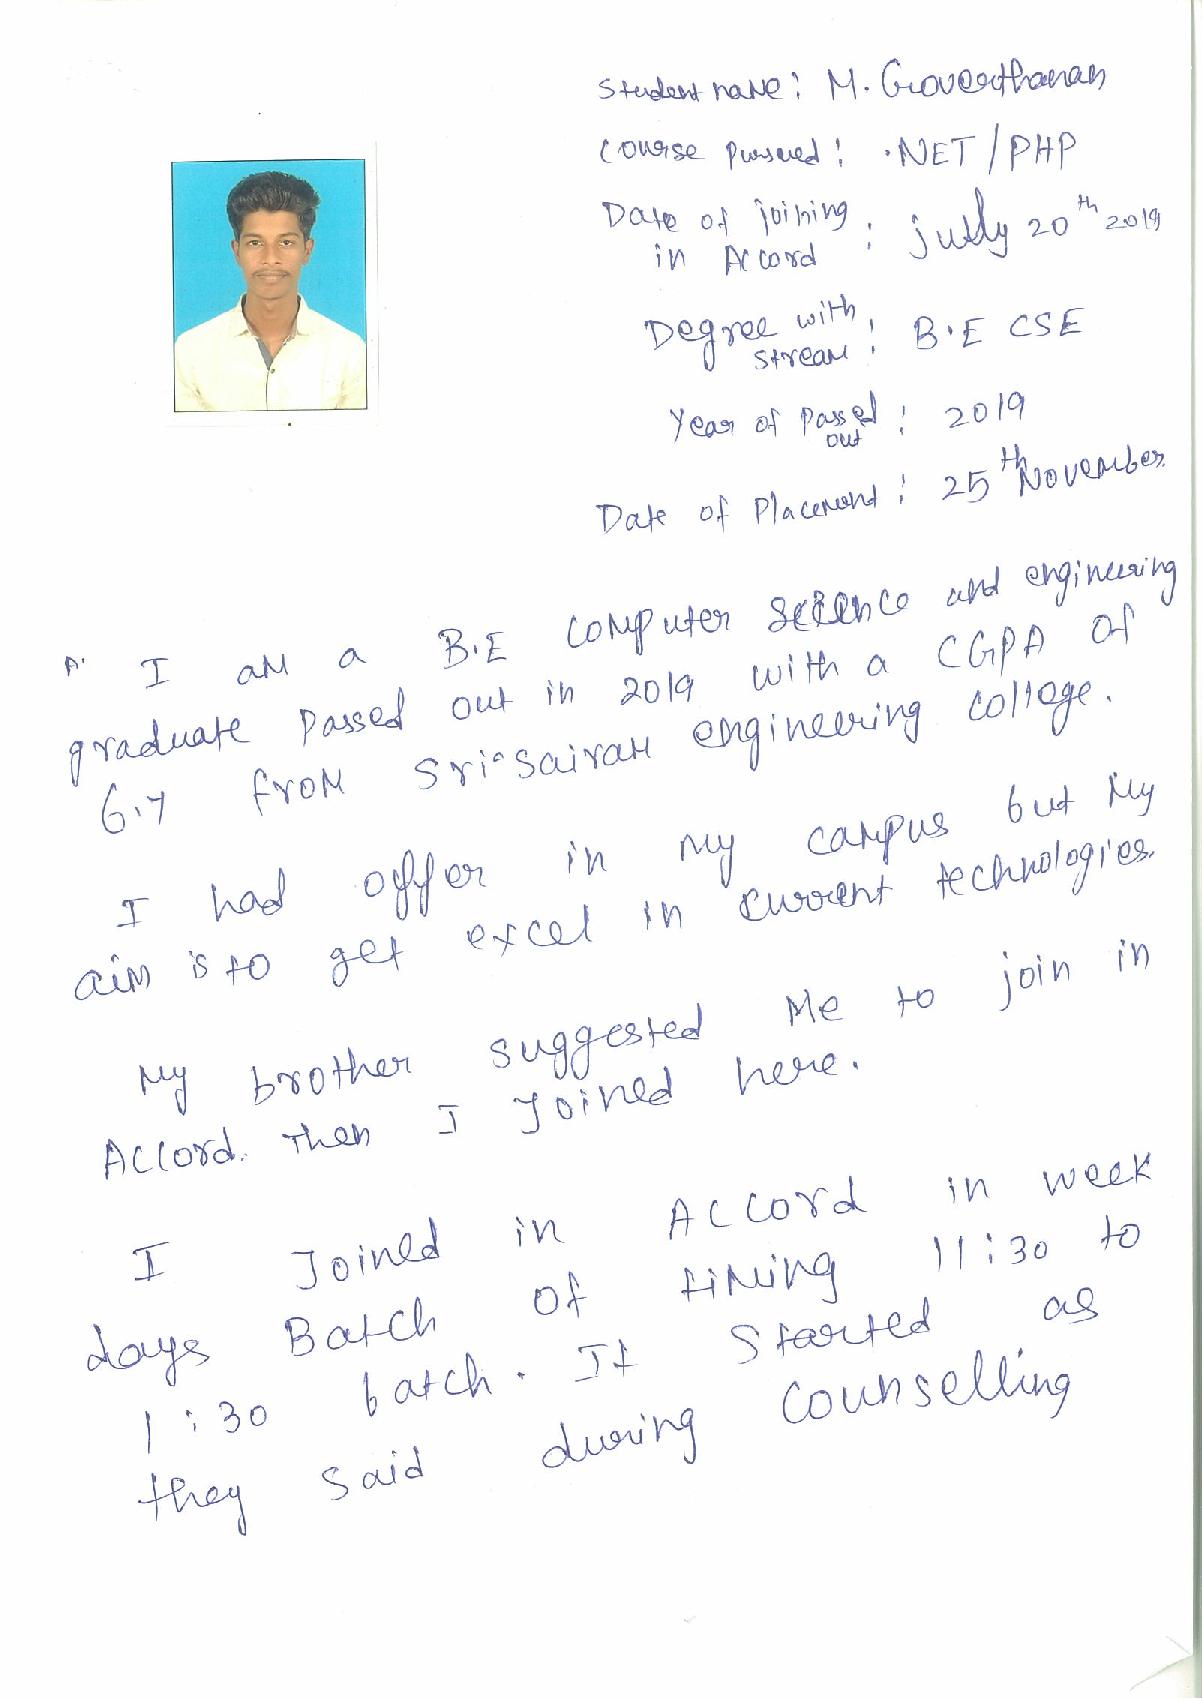 Student name: M. Goverthanan
Course Pursued: .NET/PHP
Date of joining
in Accord : jully 20th 2019
Degree with
stream : B.E CSE
Year of Passed
out : 2019
Date of Placement : 25th November
A. I am a B.E Computer Science and engineering
graduate passed out in 2019 with a CGPA of
6.7 from Sri Sairam engineering college.
I had offer in my campus but my
aim is to get excel in current technologies.
My brother suggested me to join in
Accord. Then I joined here.
I Joined in Accord in week
days Batch of timing 11:30 to
1:30 batch. It started as
they said during counselling